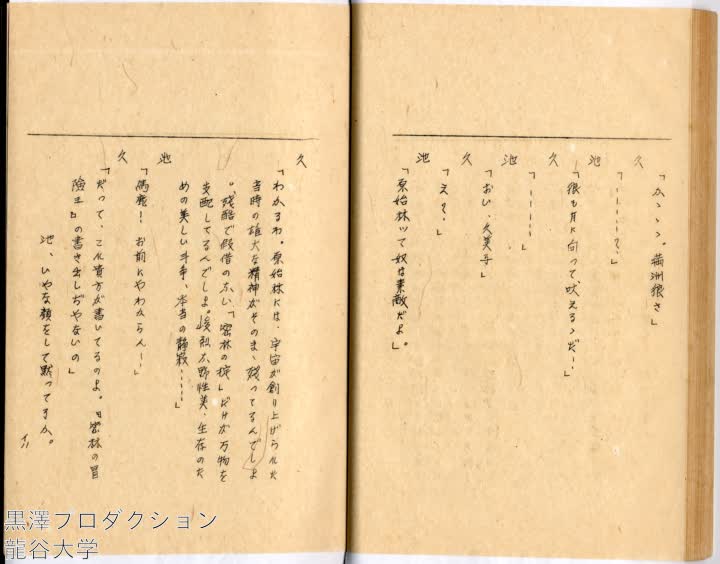 久
「かゝゝゝ。満洲狼さ」
池
「………？」
久
「狼も月に向って吠えるゝだ！」
池
「………」
久
「おい、久美子」
「え？」
池
「原始林ツて奴は素敵だよ」。
久
「わかるわ。原始林には、宇宙が創り上げられた
当時の雄大な精神がそのまゝ残ってるんでしよ
。残酷で假借のない「密林の掟」だけが万物を
支配してるんでしよ。峻烈な野性美、生存のた
めの美しい斗争、本当の静寂……」
池
「馬鹿！お前にやわからん！」
久
「だって、これ貴方が書いてるのよ。『密林の冒
険王』の書き出しぢやないの」
池、いやな顔をして黙ってるか。
黒澤プロダクション
龍谷大学